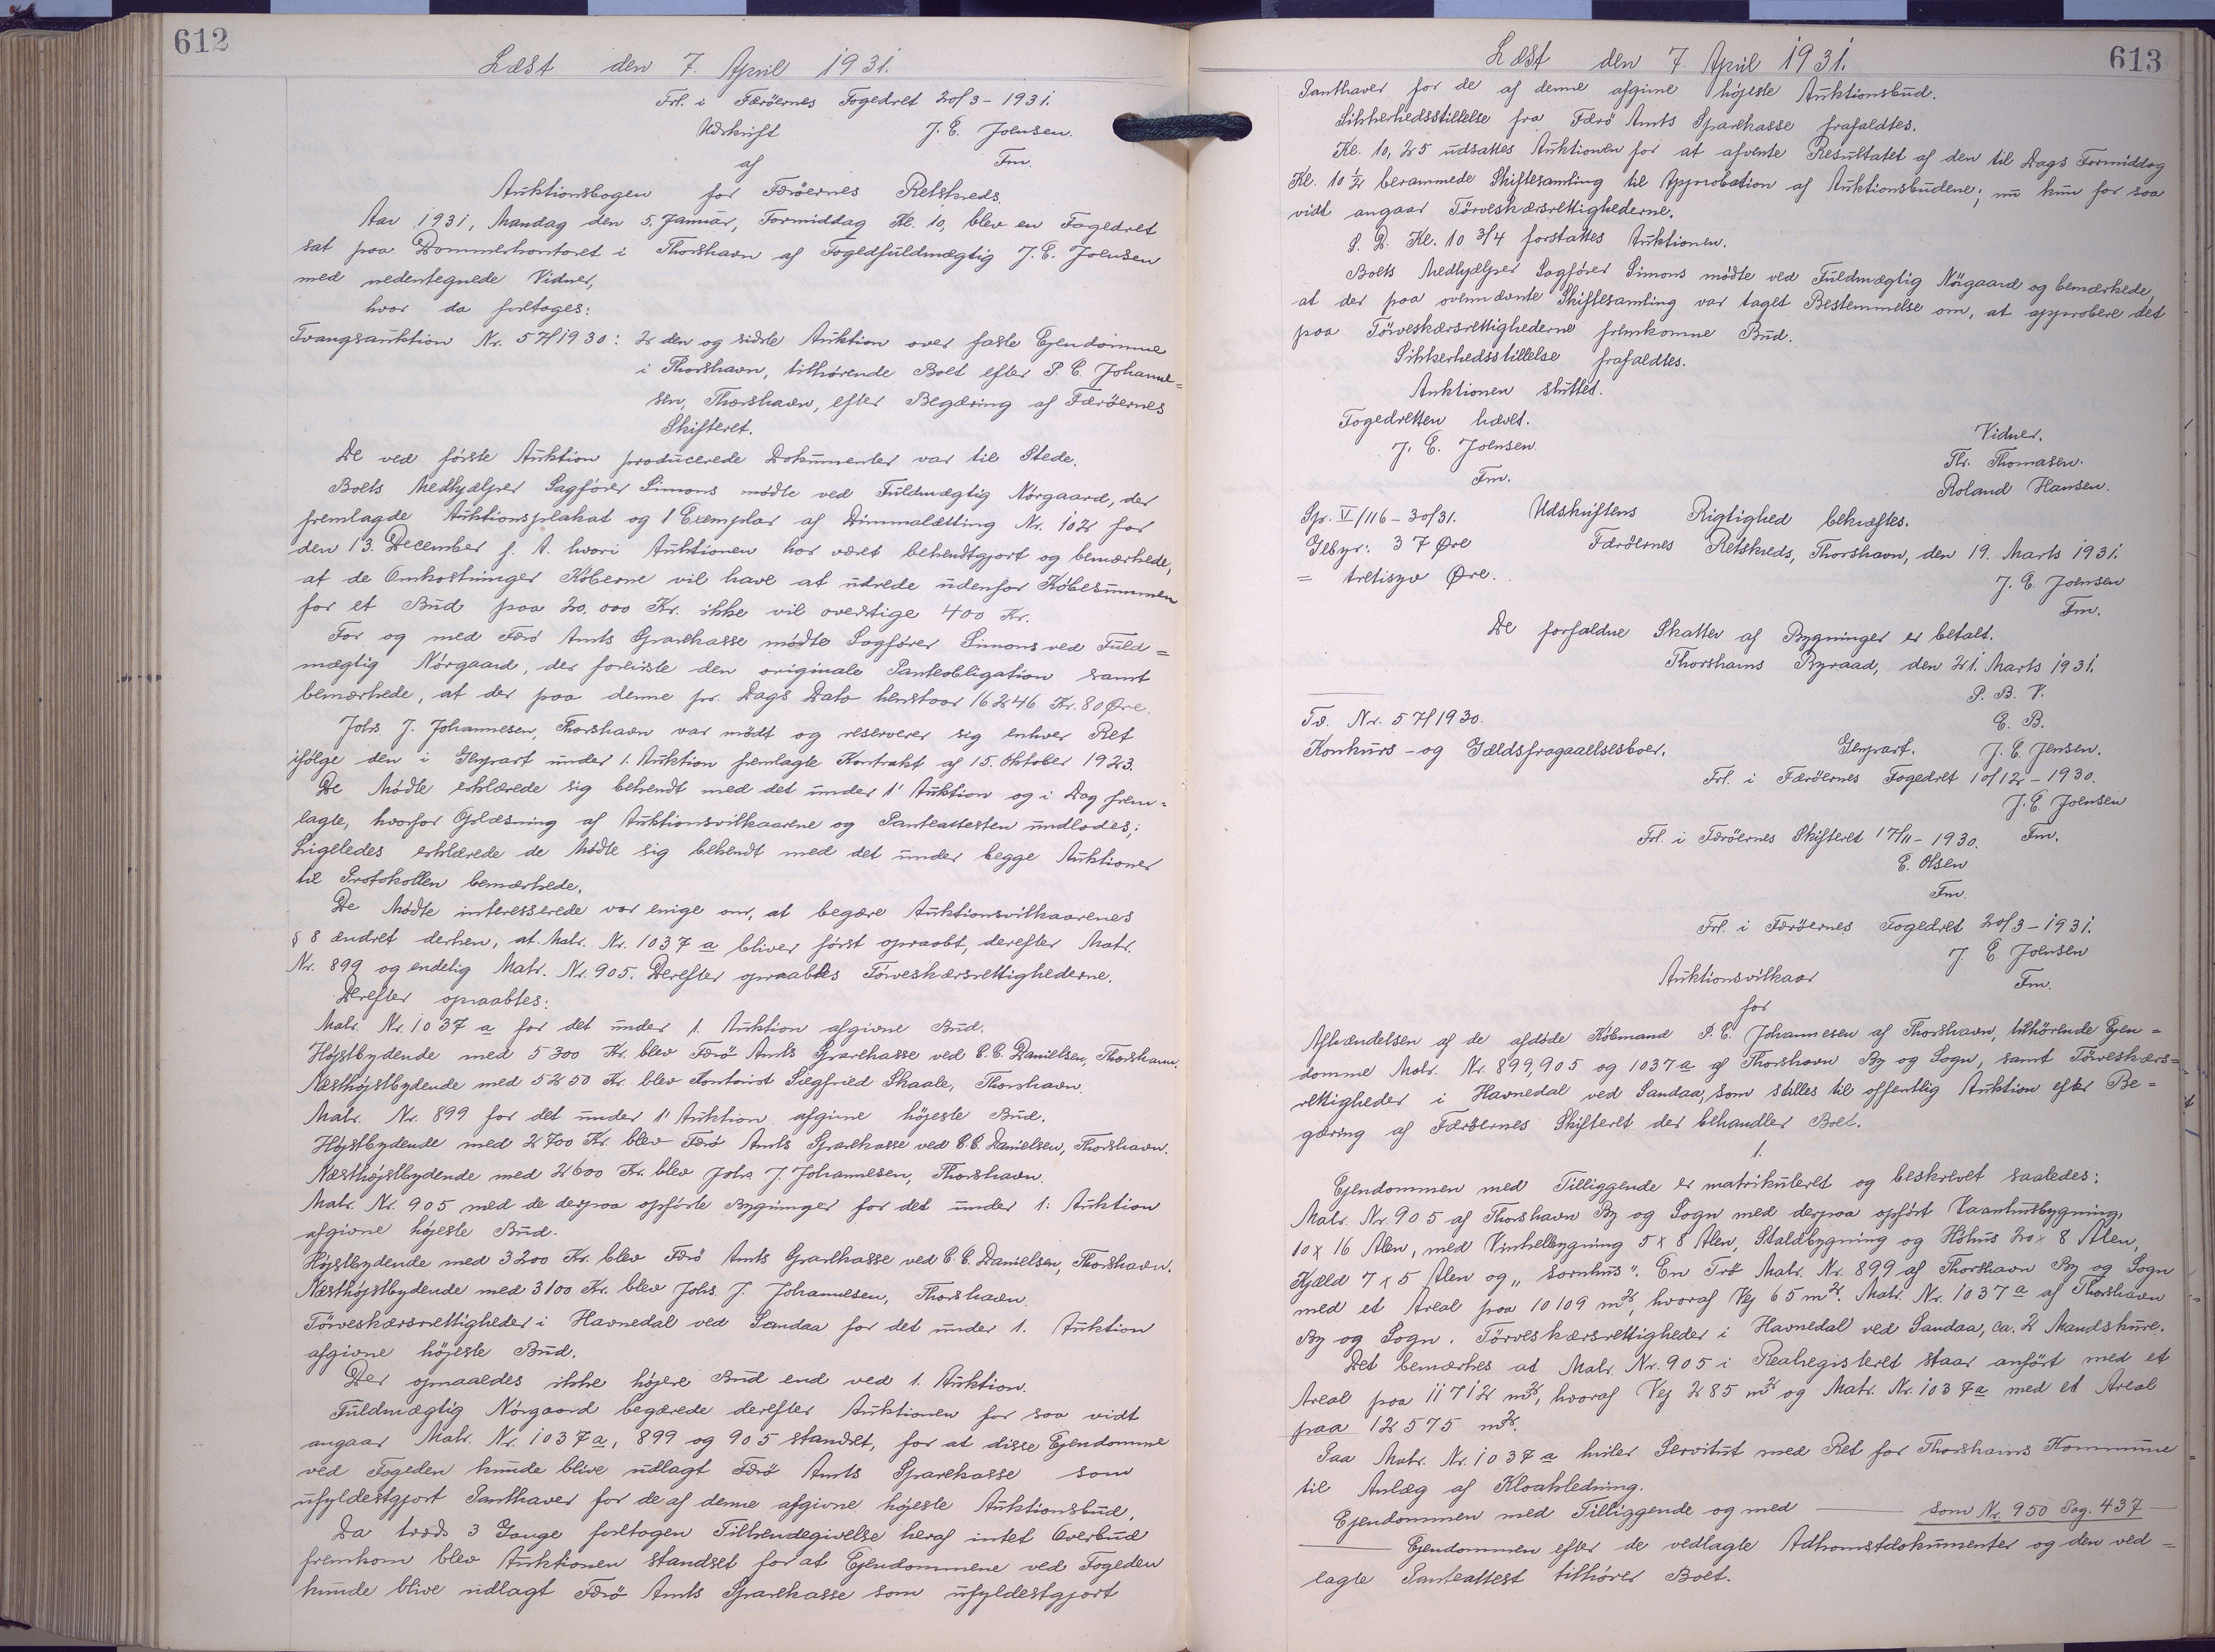 612
Læst den 7. April 1931.
Frl. i Færöernes Fogedret 20/3 - 1931.
Udskrift J. E. Joensen.
af Fm.
Auktionsbogen for Færöernes Retskreds.
Aar 1931, Mandag den 5. Januar, Formiddag Kl. 10, blev en Fogedret
sat paa Dommerkontoret i Thorshavn af Fogedfuldmægtig J. E. Joensen
med nedentegnede Vidner,
hvor da foretoges:
Tvangsauktion Nr. 57/1930: 2den og sidste Auktion over faste Ejendomme
i Thorshavn, tilhørende Boet efter P. C. Johanne=
sen, Thorshavn, efter Begæring af Færöernes
Skifteret.
De ved første Auktion producerede Dokumenter var til Stede.
Boets Medhjælper Sagfører Simons mødte ved Fuldmægtig Nørgaard, der
fremlagde Auktionsplakat og 1 Exemplar af Dimmalætting Nr. 102 for
den 13. December f. A. hvori Auktionen har været bekendtgjort og bemærkede,
at de Omkostninger Köberne vil have at udrede udenfor Købesummen
for et Bud paa 20.000 Kr. ikke vil overstige 400 Kr.
For og med Færø Amts Sparekasse mødte Sagfører Simons ved Fuld=
mægtig Nørgaard, der foreviste den originale Panteobligation samt
bemærkede, at der paa denne pr. Dags Dato henstaar 16246 Kr. 80 Øre.
Johs. J. Johannesen, Thorshavn var mødt og reserverer sig enhver Ret
ifølge den i Genpart under 1. Auktion fremlagte Kontrakt af 15. Oktober 1923.
De Mødte erklærede sig bekendt med det under 1' Auktion og i Dag frem=
lagte, hvorfor Oplæsning af Auktionsvilkaarene og Panteattesten undlodes;
Ligeledes erklærede de Mødte sig bekendt med det under begge Auktioner
til Protokollen bemærkede.
De Mødte interesserede var enige om, at begære Auktionsvilkaarenes
§ 8 ændret derhen, at Matr. Nr. 1037 a bliver først opraabt, derefter Matr.
Nr. 899 og endelig Matr. Nr. 905. Derefter opraabtes Törveskærsrettighederne.
Derefter opraabtes:
Matr. Nr. 1037 a for det under 1. Auktion afgivne Bud.
Højstbydende med 5300 Kr. blev Færö Amts Sparekasse ved C. C. Danielsen, Thorshavn.
Næsthøjstbydende med 5250 Kr. blev Kontorist Siegfried Skaale, Thorshavn.
Matr. Nr. 899 for det under 1' Auktion afgivne höjeste Bud.
Höjstbydende med 2700 Kr. blev Færö Amts Sparekasse ved C. C. Danielsen, Thorshavn.
Næsthøjstbydende med 2600 Kr. blev Johs. J. Johannesen, Thorshavn.
Matr. Nr. 905 med de derpaa opførte Bygninger for det under 1. Auktion
afgivne højeste Bud.
Højstbydende med 3200 Kr. blev Færö Amts Sparekasse ved C. C. Danielsen, Thorshavn.
Næsthöjstbydende med 3100 Kr. blev Johs. J. Johannesen, Thorshavn.
Törveskærsrettigheder i Havnedal ved Sandaa for det under 1. Auktion
afgivne höjeste Bud.
Der opnaaedes ikke højere Bud end ved 1. Auktion.
Fuldmægtig Nørgaard begærede derefter Auktionen for saa vidt
angaar Matr. Nr. 1037a, 899 og 905 standset, for at disse Ejendomme
ved Fogeden kunde blive udlagt Færø Amts Sparekasse som
ufyldestgjort Panthaver for de af denne afgivne højeste Auktionsbud.
Da trods 3 Gange foretagen Tilkendegivelse heraf intet Overbud
fremkom blev Auktionen standset for at Ejendommene ved Fogeden
kunde blive udlagt Færö Amts Sparekasse som ufyldestgjort
613
Læst den 7. April 1931.
Panthaver for de af denne afgivne højeste Auktionsbud.
Sikkerhedsstillelse fra Færö Amts Sparekasse frafaldtes.
Kl. 10,25 udsattes Auktionen for at afvente Resultatet af den til Dags Formiddag
Kl. 10 1/2 berammede Skiftesamling til Approbation af Auktionsbudene; nu kun for saa
vidt angaar Törveskærsrettighederne.
S. D. Kl. 10 3/4 fortsattes Auktionen.
Boets Medhjælper Sagfører Simons mødte ved Fuldmægtig Nörgaard og bemærkede,
at der paa ovennævnte Skiftesamling var taget Bestemmelse om, at approbere det
paa Törveskærsrettighederne fremkomne Bud.
Sikkerhedsstillelse frafaldtes.
Auktionen sluttet.
Fogedretten hævet. Vidner.
J. E. Joensen Thr. Thomasen.
Fm. Roland Hansen.
Sp. V/116 - 30/31. Udskriftens Rigtighed bekræftes.
Gebyr: 37 Øre Færöernes Retskreds, Thorshavn, den 19. Marts 1931.
= tretisyv Øre. J. E. Joensen
Fm.
De forfaldne Skatter af Bygninger er betalt.
Thorshavns Byraad, den 21. Marts 1931.
P. B. V.
Tv. Nr. 57/1930. E. B.
Konkurs- og Gældsfragaaelsesboer. Genpart. J. C. Jensen.
Frl. i Færöernes Fogedret 10/12 - 1930.
J. E. Joensen
Frl. i Færöernes Skifteret 17/11 - 1930. Fm.
E. Olsen
Fm.
Frl. i Færöernes Fogedret 20/3 - 1931.
J. E. Joensen
Auktionsvilkaar Fm.
for
Afhændelsen af de afdøde Købmand P. C. Johannesen af Thorshavn, tilhörende Ejen=
domme Matr. Nr. 899, 905 og 1037a af Thorshavn By og Sogn, samt Törveskærs=
rettigheder i Havnedal ved Sandaa, som stilles til offentlig Auktion efter Be=
gæring af Færöernes Skifteret der behandler Boet.
1.
Ejendommen med Tilliggende er matrikuleret og beskrevet saaledes:
Matr. Nr. 905 af Thorshavn By og Sogn med derpaa opfört Vaaningsbygning,
10 x 16 Alen, med Vinkelbygning 5 x 8 Alen, Staldbygning og Höhus 20 x 8 Alen,
Kjæld 7 x 5 Alen og „sornhus". En Trö Matr. Nr. 899 af Thorshavn By og Sogn
med et Areal paa 10109 m², hvoraf Vej 65 m². Matr. Nr. 1037a af Thorshavn
By og Sogn. Törveskærsrettigheder i Havnedal ved Sandaa, ca. 2 Mandskure.
Det bemærkes at Matr. Nr. 905 i Realregisteret staar anfört med et
Areal paa 11712 m², hvoraf Vej 285 m² og Matr. Nr. 1037a med et Areal
paa 12575 m².
Paa Matr. Nr. 1037a hviler Servitut med Ret for Thorshavns Kommune
til Anlæg af Kloakledning.
Ejendommen med Tilliggende og med — som Nr. 950 Pag. 437 —
— Ejendommen efter de vedlagte Adkomstdokumenter og den ved=
lagte Panteattest tilhører Boet.